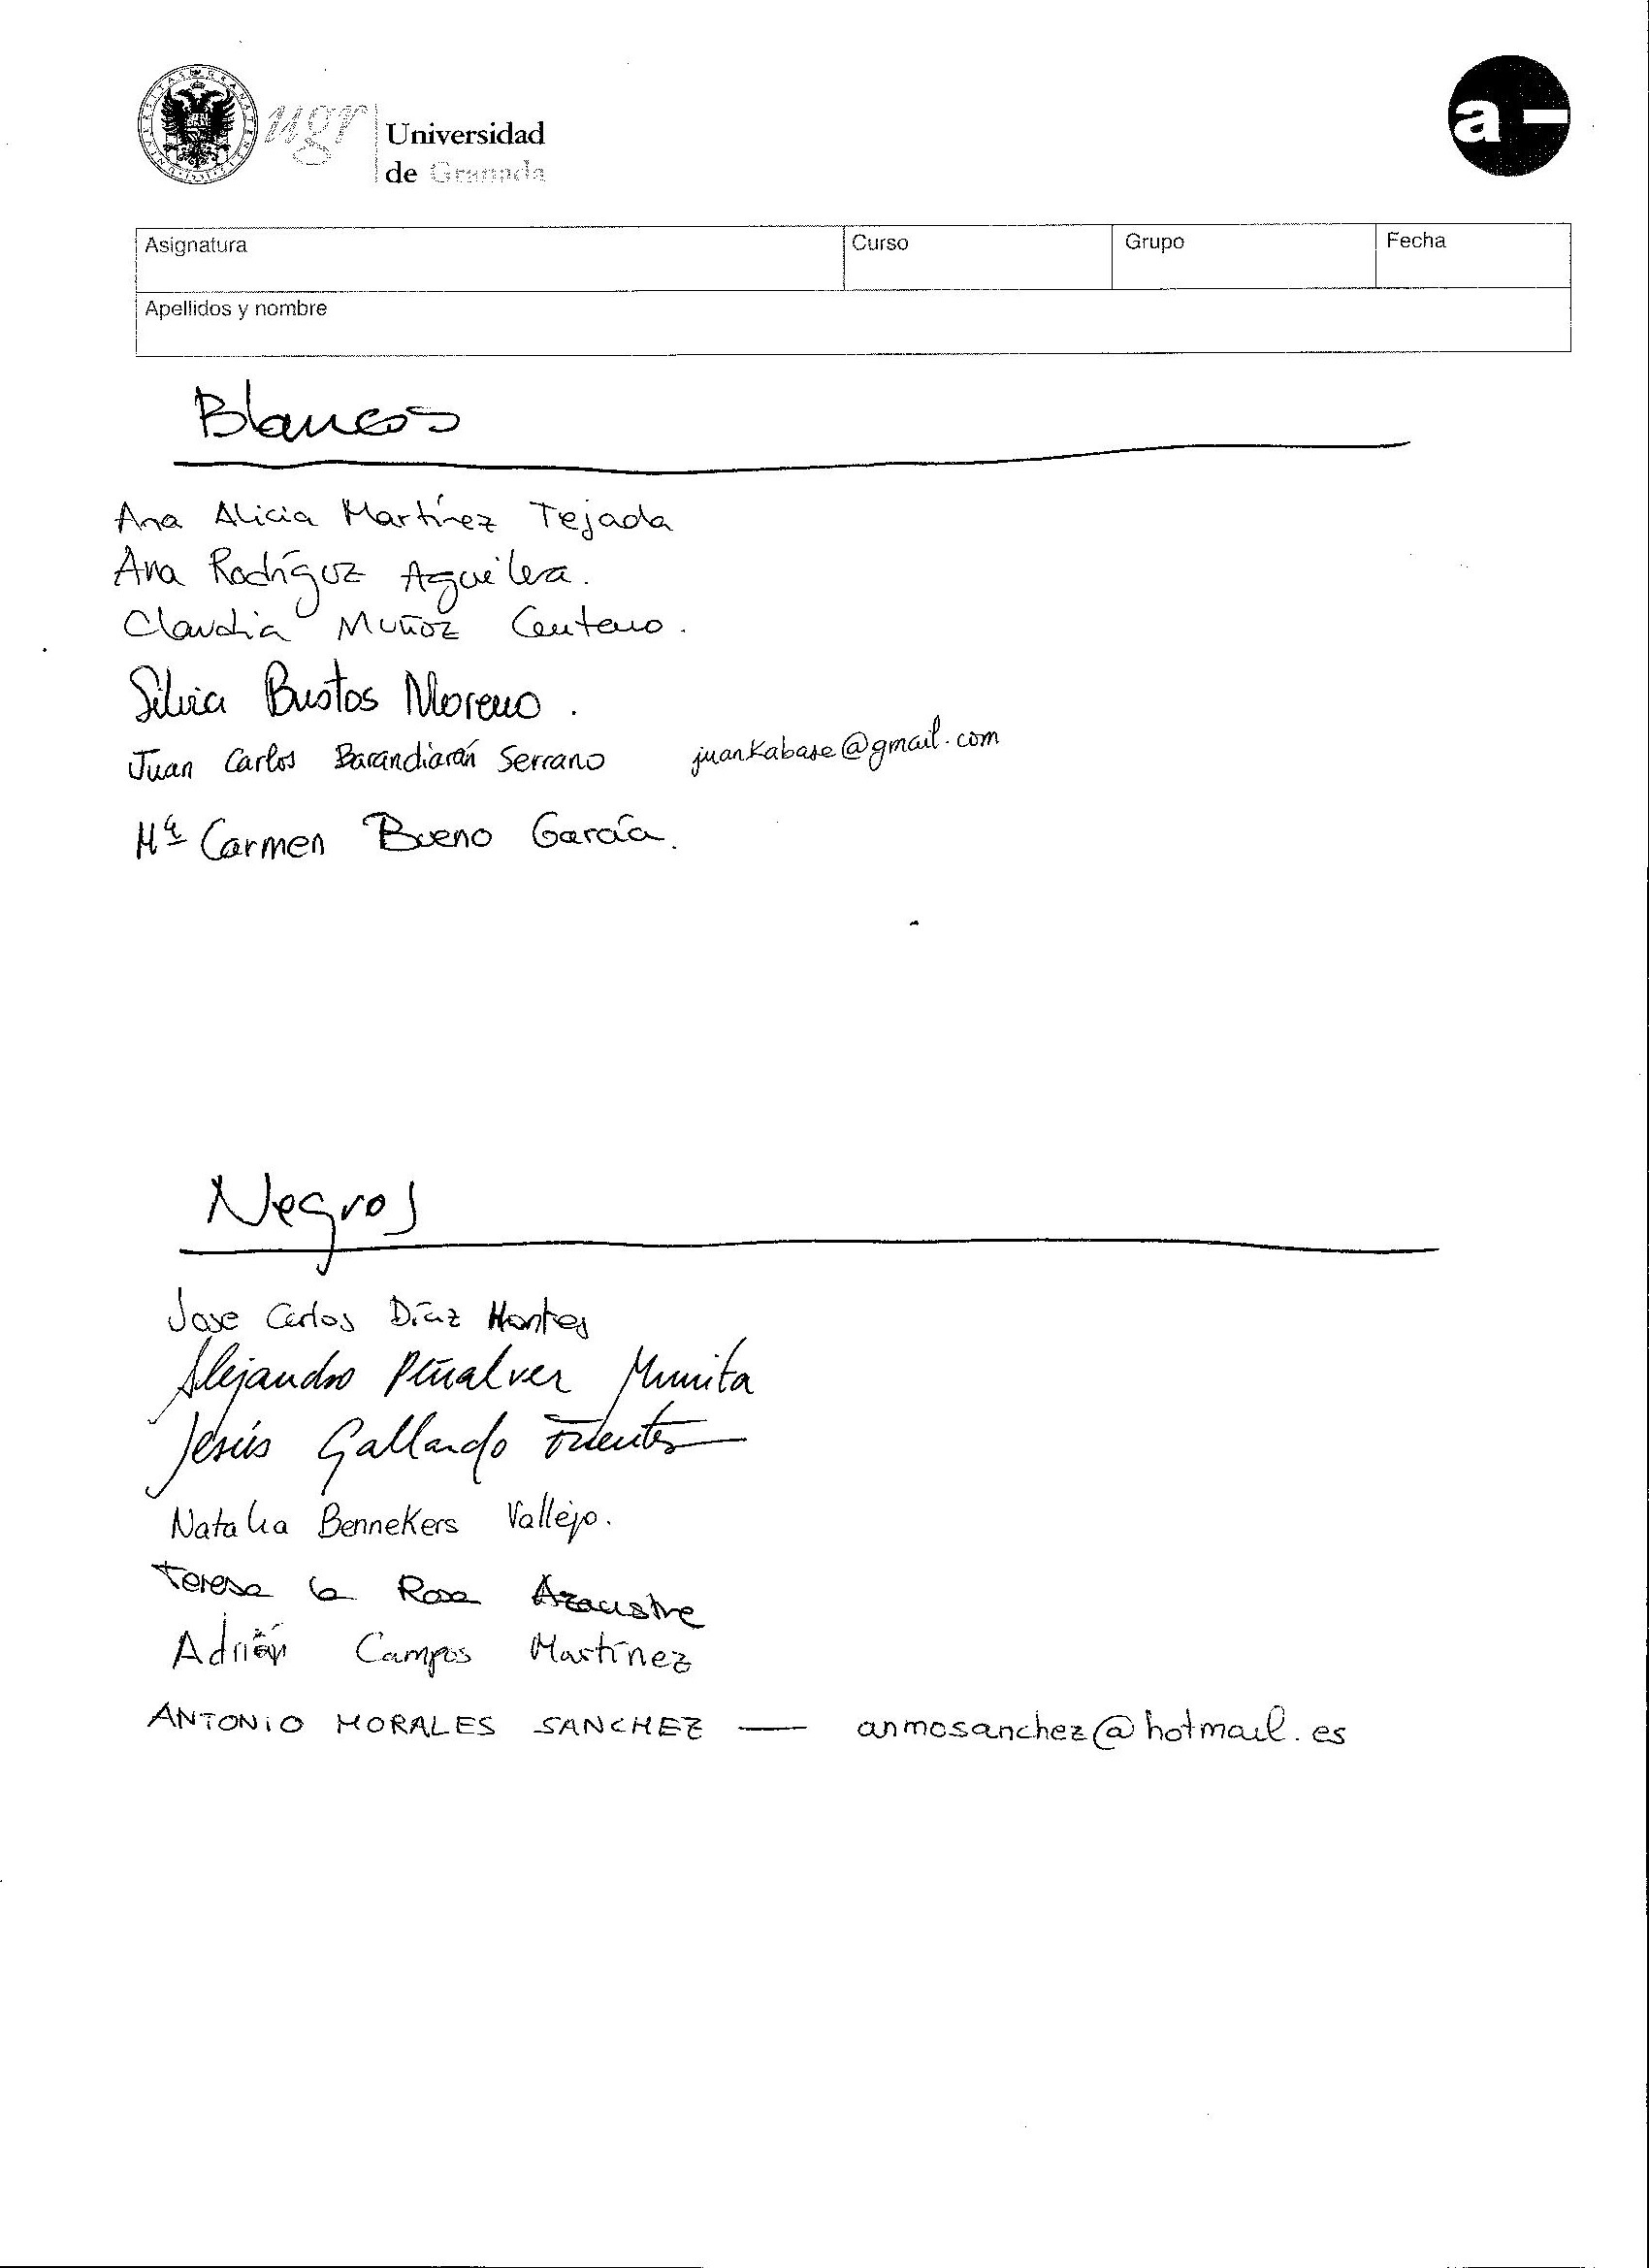 ugr Universidad
de Granada
a-
Asignatura Curso Grupo Fecha
Apellidos y nombre
Blancos
Ana Alicia Martínez Tejada
Ana Rodríguz Aguilera.
Claudia Muñoz Centeno.
Silvia Bustos Moreno.
Juan Carlos Barandiarán Serrano juankabase@gmail.com
Mª Carmen Bueno García.
Negros
Jose Carlos Díaz Montes
Alejandro Peñalver Munita
Jesús Gallardo Fuentes
Natalia Bennekers Vallejo.
Teresa la Rosa Azaustre
Adrián Campos Martínez
ANTONIO MORALES SANCHEZ — anmosanchez@hotmail.es